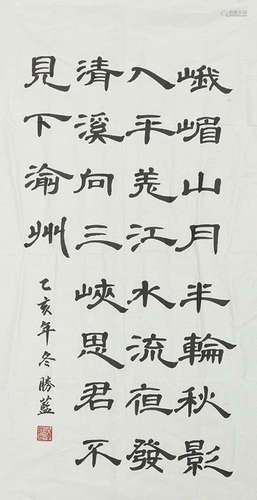 峨嵋山月半輪秋影
入平羌江水流夜發
清溪向三峽思君不
見下渝州
乙亥年冬勝藍